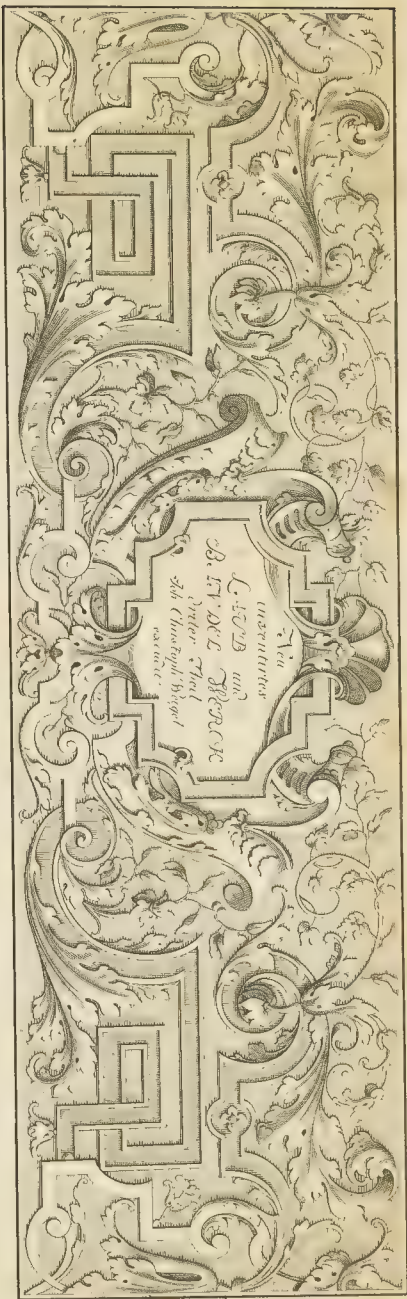 Neu
inventirtes
LAUB und
BANDEL WERCK
Dritter Theil
Joh Christoph Weigel
excudit